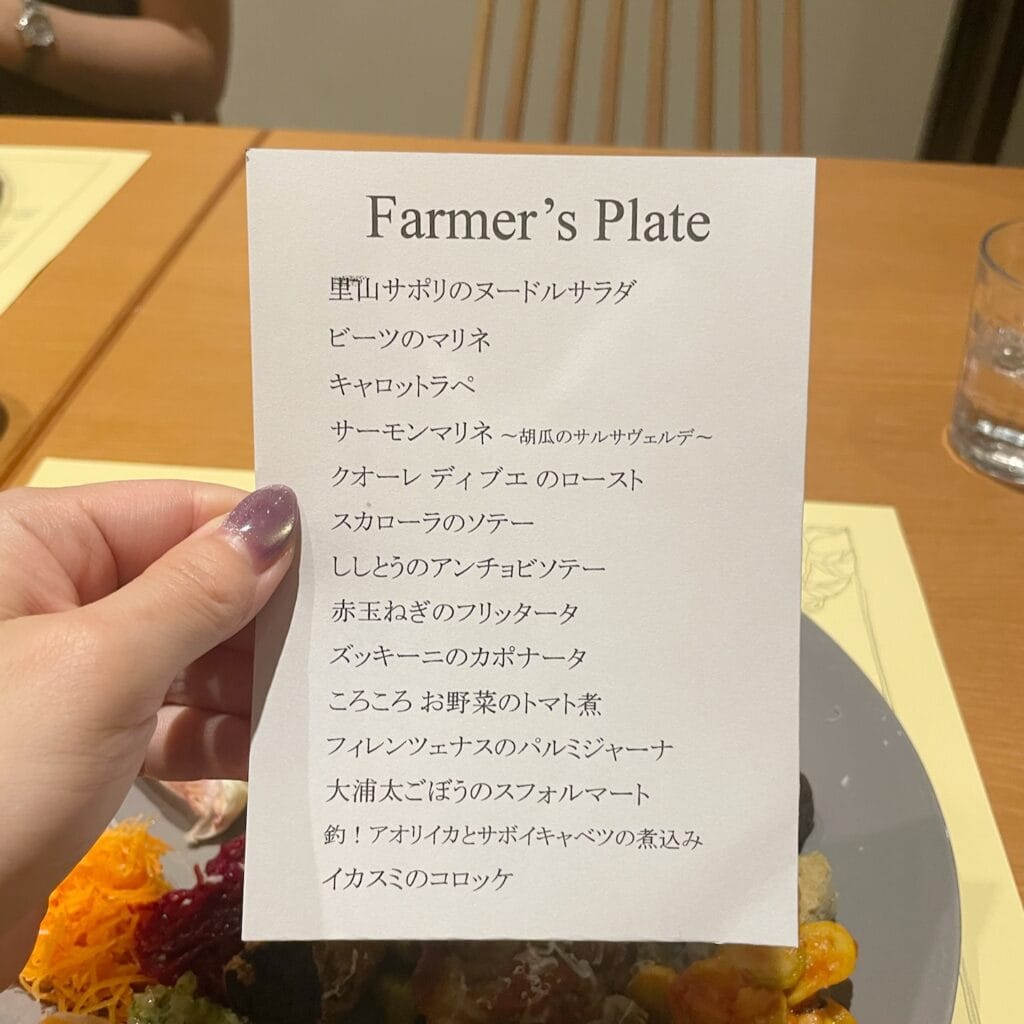 Farmer's Plate
里山サポリのヌードルサラダ
ビーツのマリネ
キャロットラペ
サーモンマリネ ～胡瓜のサルサヴェルデ～
クオーレ ディ ブエ のロースト
スカローラのソテー
ししとうのアンチョビソテー
赤玉ねぎのフリッタータ
ズッキーニのカポナータ
ころころ お野菜のトマト煮
フィレンツェナスのパルミジャーナ
大浦太ごぼうのスフォルマート
釣！アオリイカとサボイキャベツの煮込み
イカスミのコロッケ